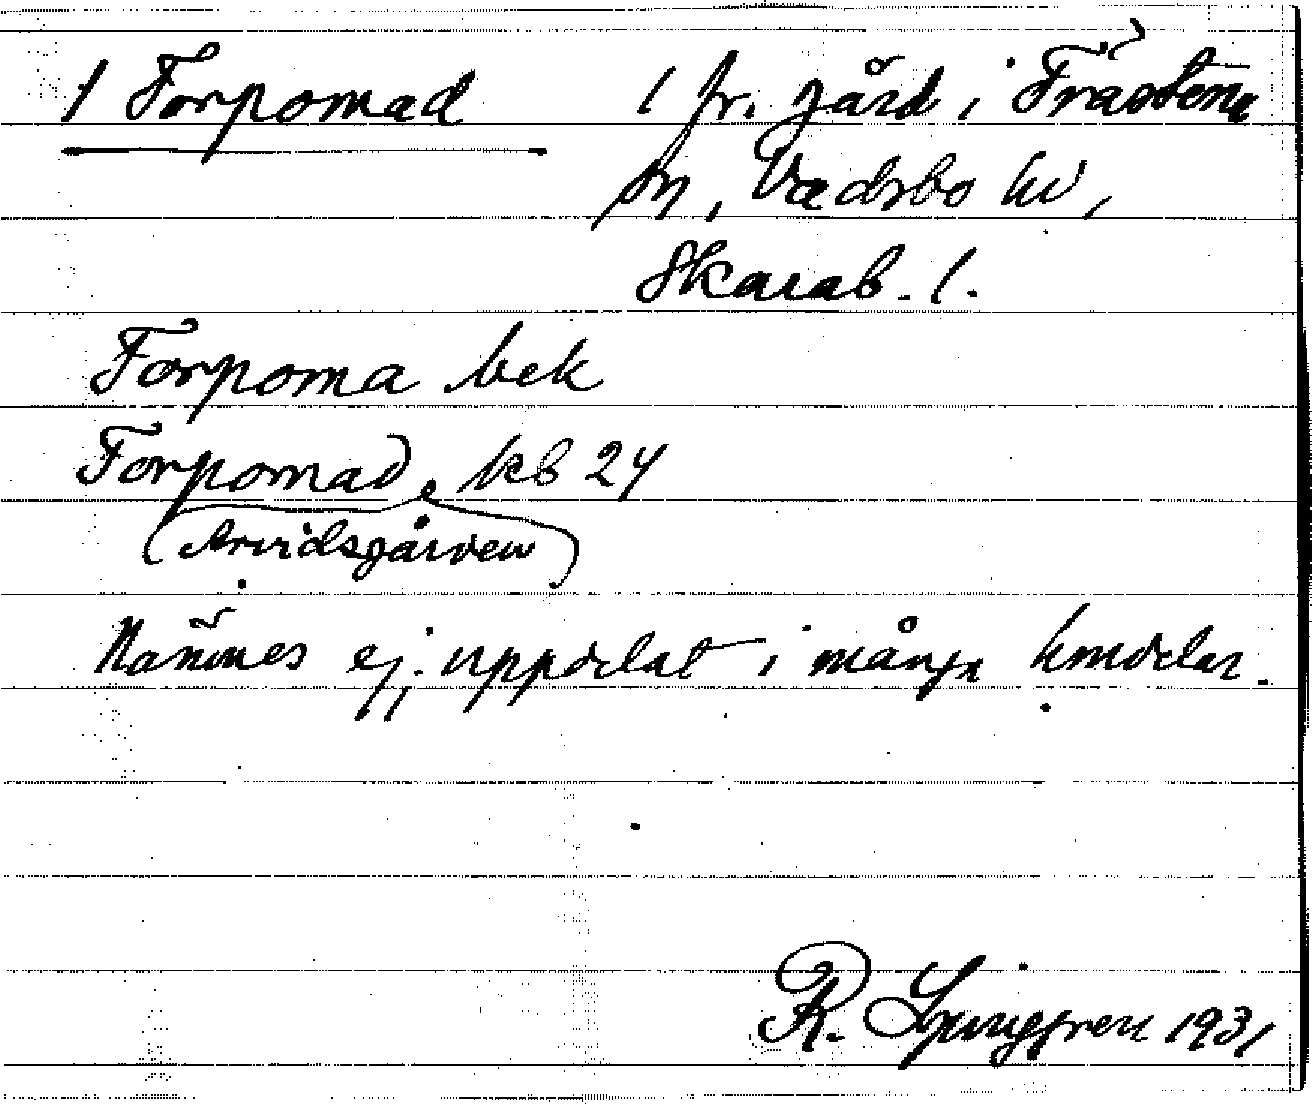 1 Torpomad 1 fr. gård i Trästena
sn, Vadsbo hd,
Skarab. l.
Torpoma bek
Torpomad, kb 24
(Arvidsgården)
Nämnes ej. uppdelat i många hmdelar.
R. Ljunggren 1931